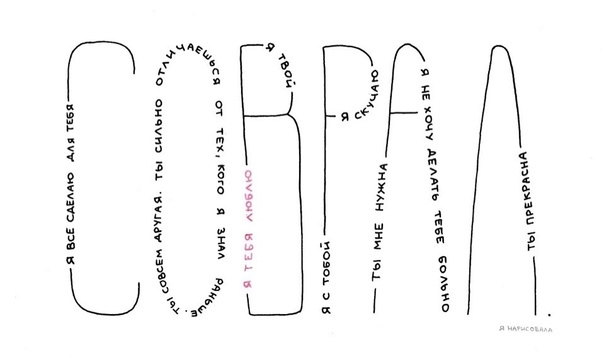 СОВРАЛ.
Я ВСЕ СДЕЛАЮ ДЛЯ ТЕБЯ
ТЫ СОВСЕМ ДРУГАЯ. ТЫ СИЛЬНО ОТЛИЧАЕШЬСЯ ОТ ТЕХ, КОГО Я ЗНАЛ РАНЬШЕ.
Я ТЕБЯ ЛЮБЛЮ
Я ТВОЙ
Я С ТОБОЙ
Я СКУЧАЮ
ТЫ МНЕ НУЖНА
Я НЕ ХОЧУ ДЕЛАТЬ ТЕБЕ БОЛЬНО
ТЫ ПРЕКРАСНА
Я НАРИСОВАЛА